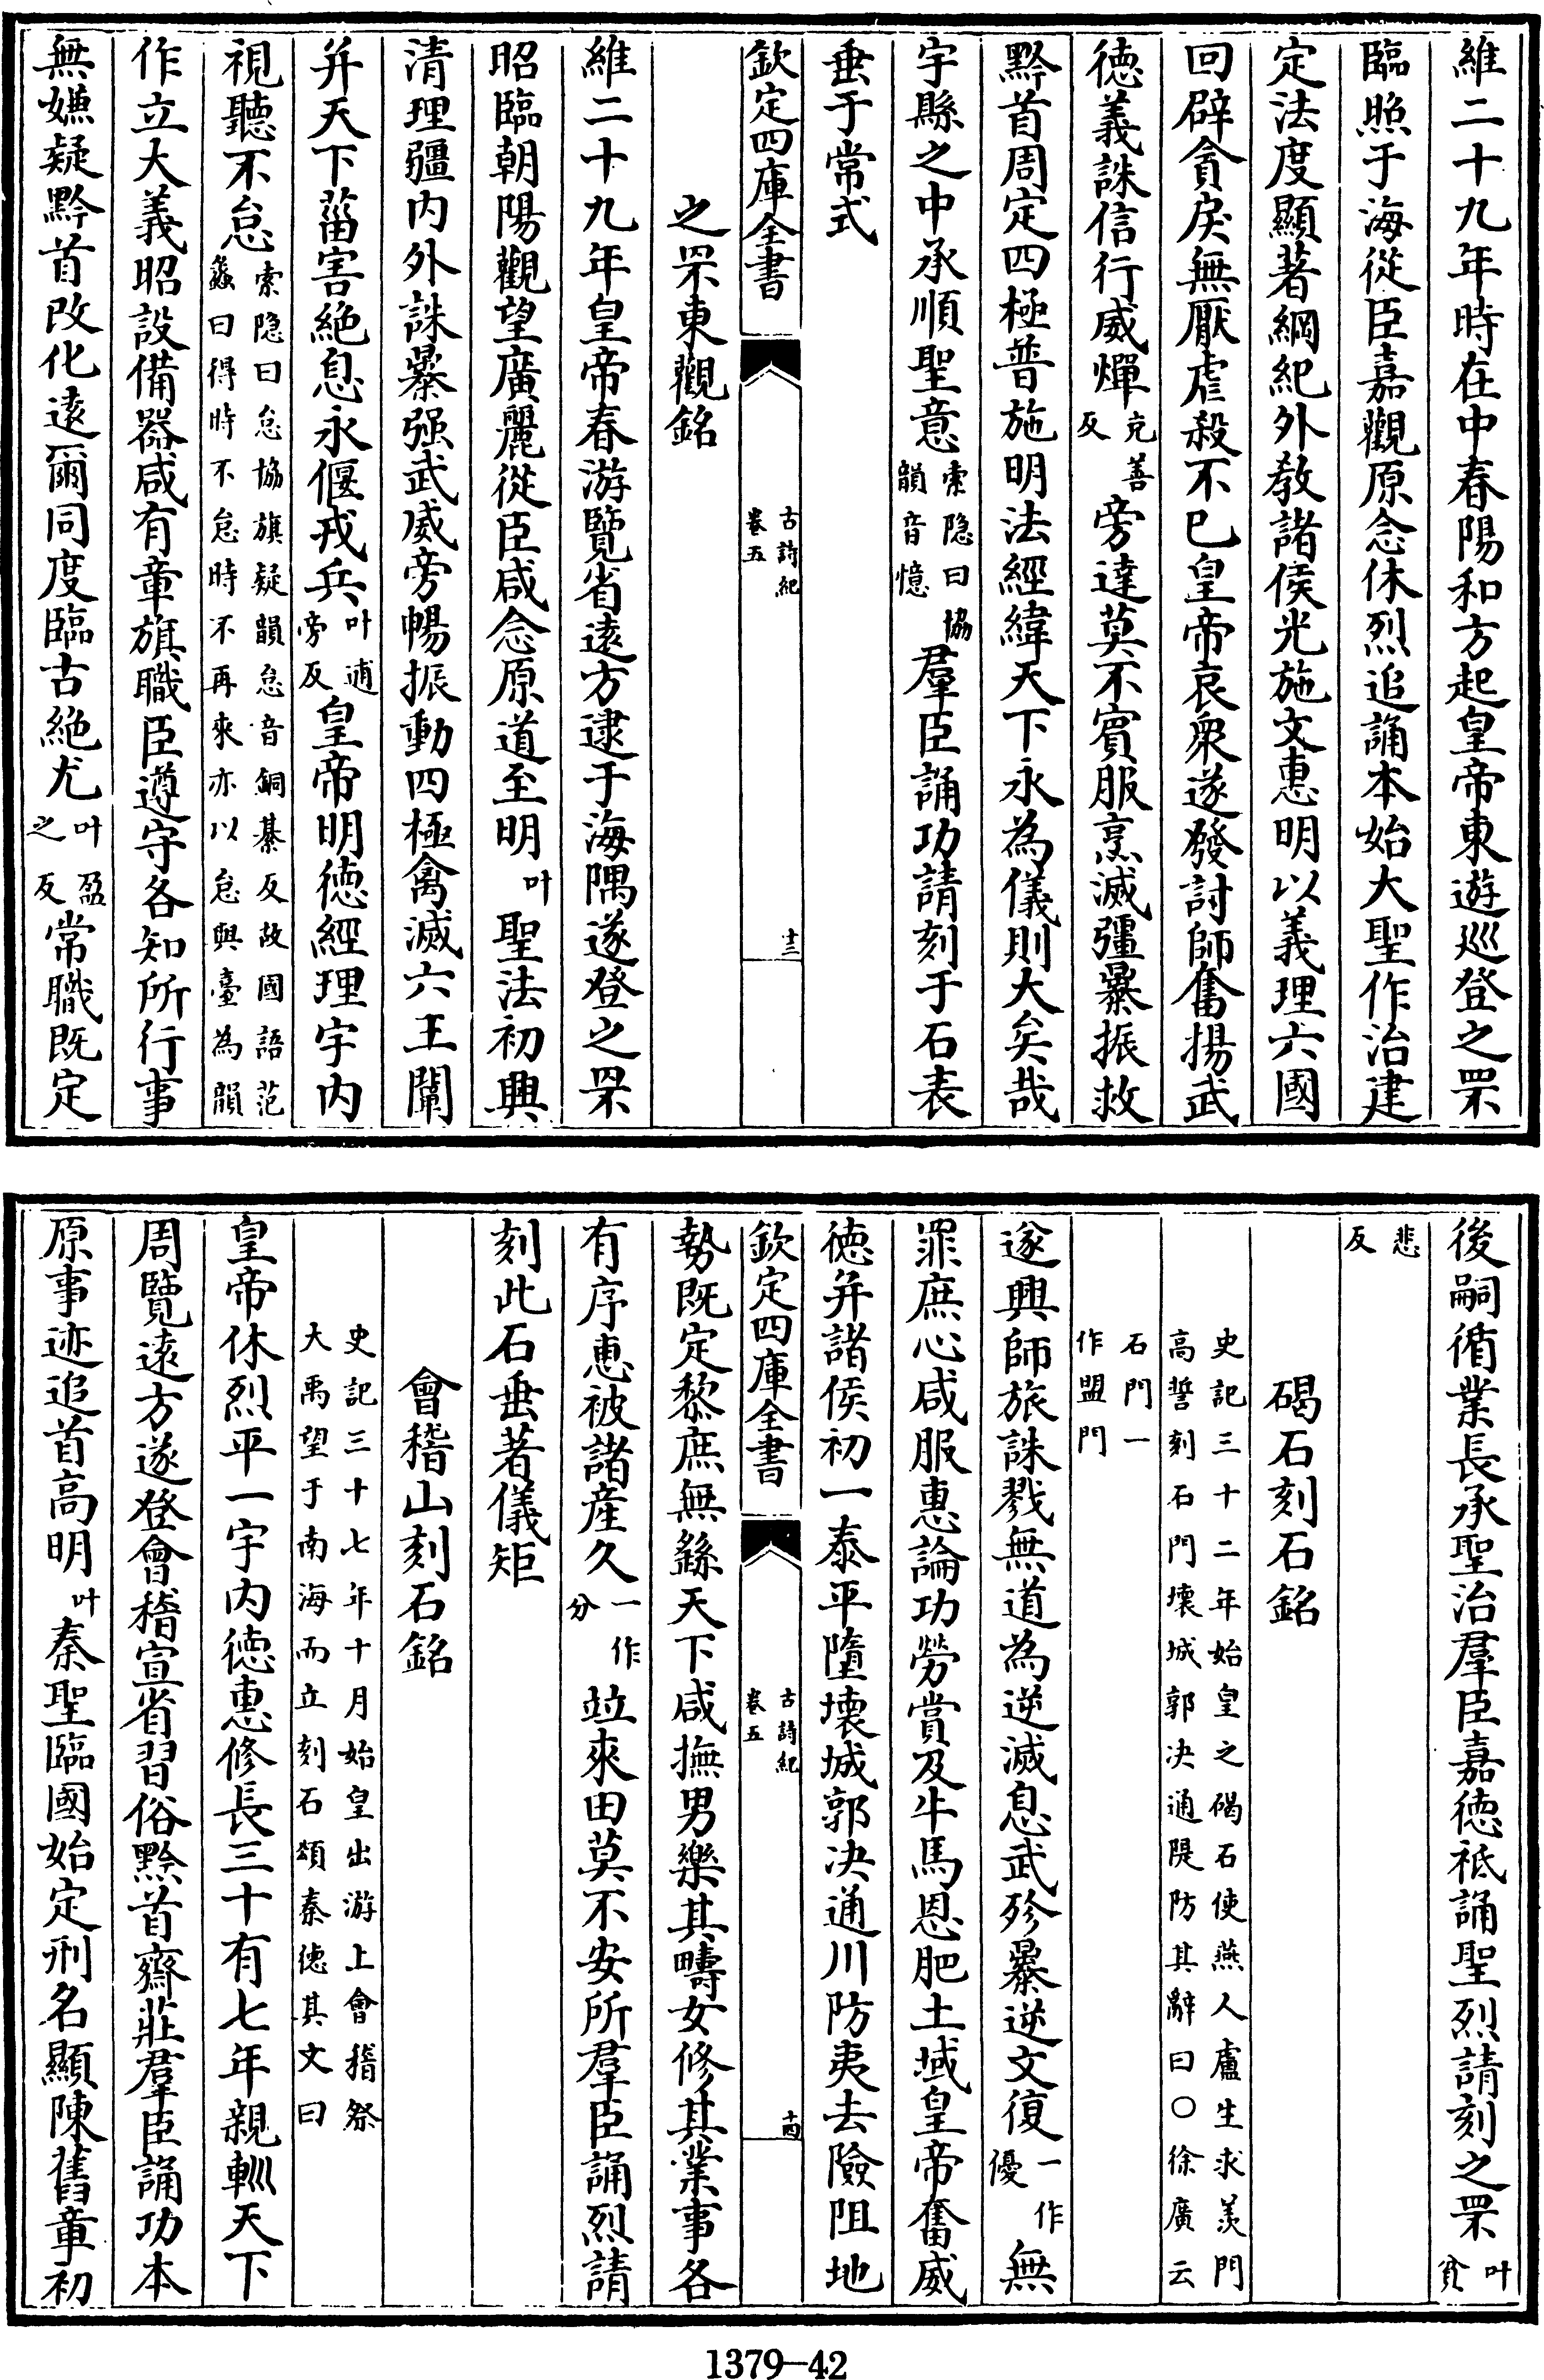 維二十九年時在中春陽和方起皇帝東遊廵登之罘
臨照于海從臣嘉觀原念休烈追誦本始大聖作治建
定法度顯著綱紀外教諸侯光施文惠明以義理六國
回辟貪戾無厭虐殺不已皇帝哀衆遂發討師奮揚武
德義誅信行威燀充善反旁達莫不賓服烹滅彊暴振救
黔首周定四極普施明法經緯天下永為儀則大矣哉
宇縣之中承順聖意索隐曰協韻音憶羣臣誦功請刻于石表
垂于常式
欽定四庫全書 古詩紀卷五 十三
之罘東觀銘
維二十九年皇帝春游覽省逺方逮于海隅遂登之罘
昭臨朝陽觀望廣麗從臣咸念原道至明叶聖法初興
清理疆内外誅暴强武威旁暢振動四極禽滅六王闡
并天下菑害絶息永偃戎兵叶逋旁反皇帝明德經理宇内
視聽不怠索隐曰怠協旗疑韻怠音銅綦反故國語范蠡曰得時不怠時不再來亦以怠與臺為韻
作立大義昭設備器咸有章旗職臣遵守各知所行事
無嫌疑黔首改化逺爾同度臨古絶尤叶盈之反常職既定
後嗣循業長承聖治羣臣嘉德祇誦聖烈請刻之罘叶貧
悲反
碣石刻石銘
史記三十二年始皇之碣石使燕人盧生求羨門高誓刻石門壊城郭决通隄防其辭曰○徐廣云
石門一作盟門
遂興師旅誅戮無道為逆滅息武殄暴逆文復一作優無
罪庶心咸服惠論功勞賞及牛馬恩肥土域皇帝奮威
德并諸侯初一泰平墮壊城郭决通川防夷去險阻地
欽定四庫全書 古詩紀卷五 十四
勢既定黎庶無繇天下咸撫男樂其疇女修其業事各
有序惠被諸産久一作分竝來田莫不安所羣臣誦烈請
刻此石垂著儀矩
會稽山刻石銘
史記三十七年十月始皇出游上會稽祭大禹望于南海而立刻石頌秦德其文曰
皇帝休烈平一宇内德惠修長三十有七年親輙天下
周覽逺方遂登會稽宣省習俗黔首齋莊羣臣誦功本
原事迹追首高明叶秦聖臨國始定刑名顯陳舊章初
1379—42